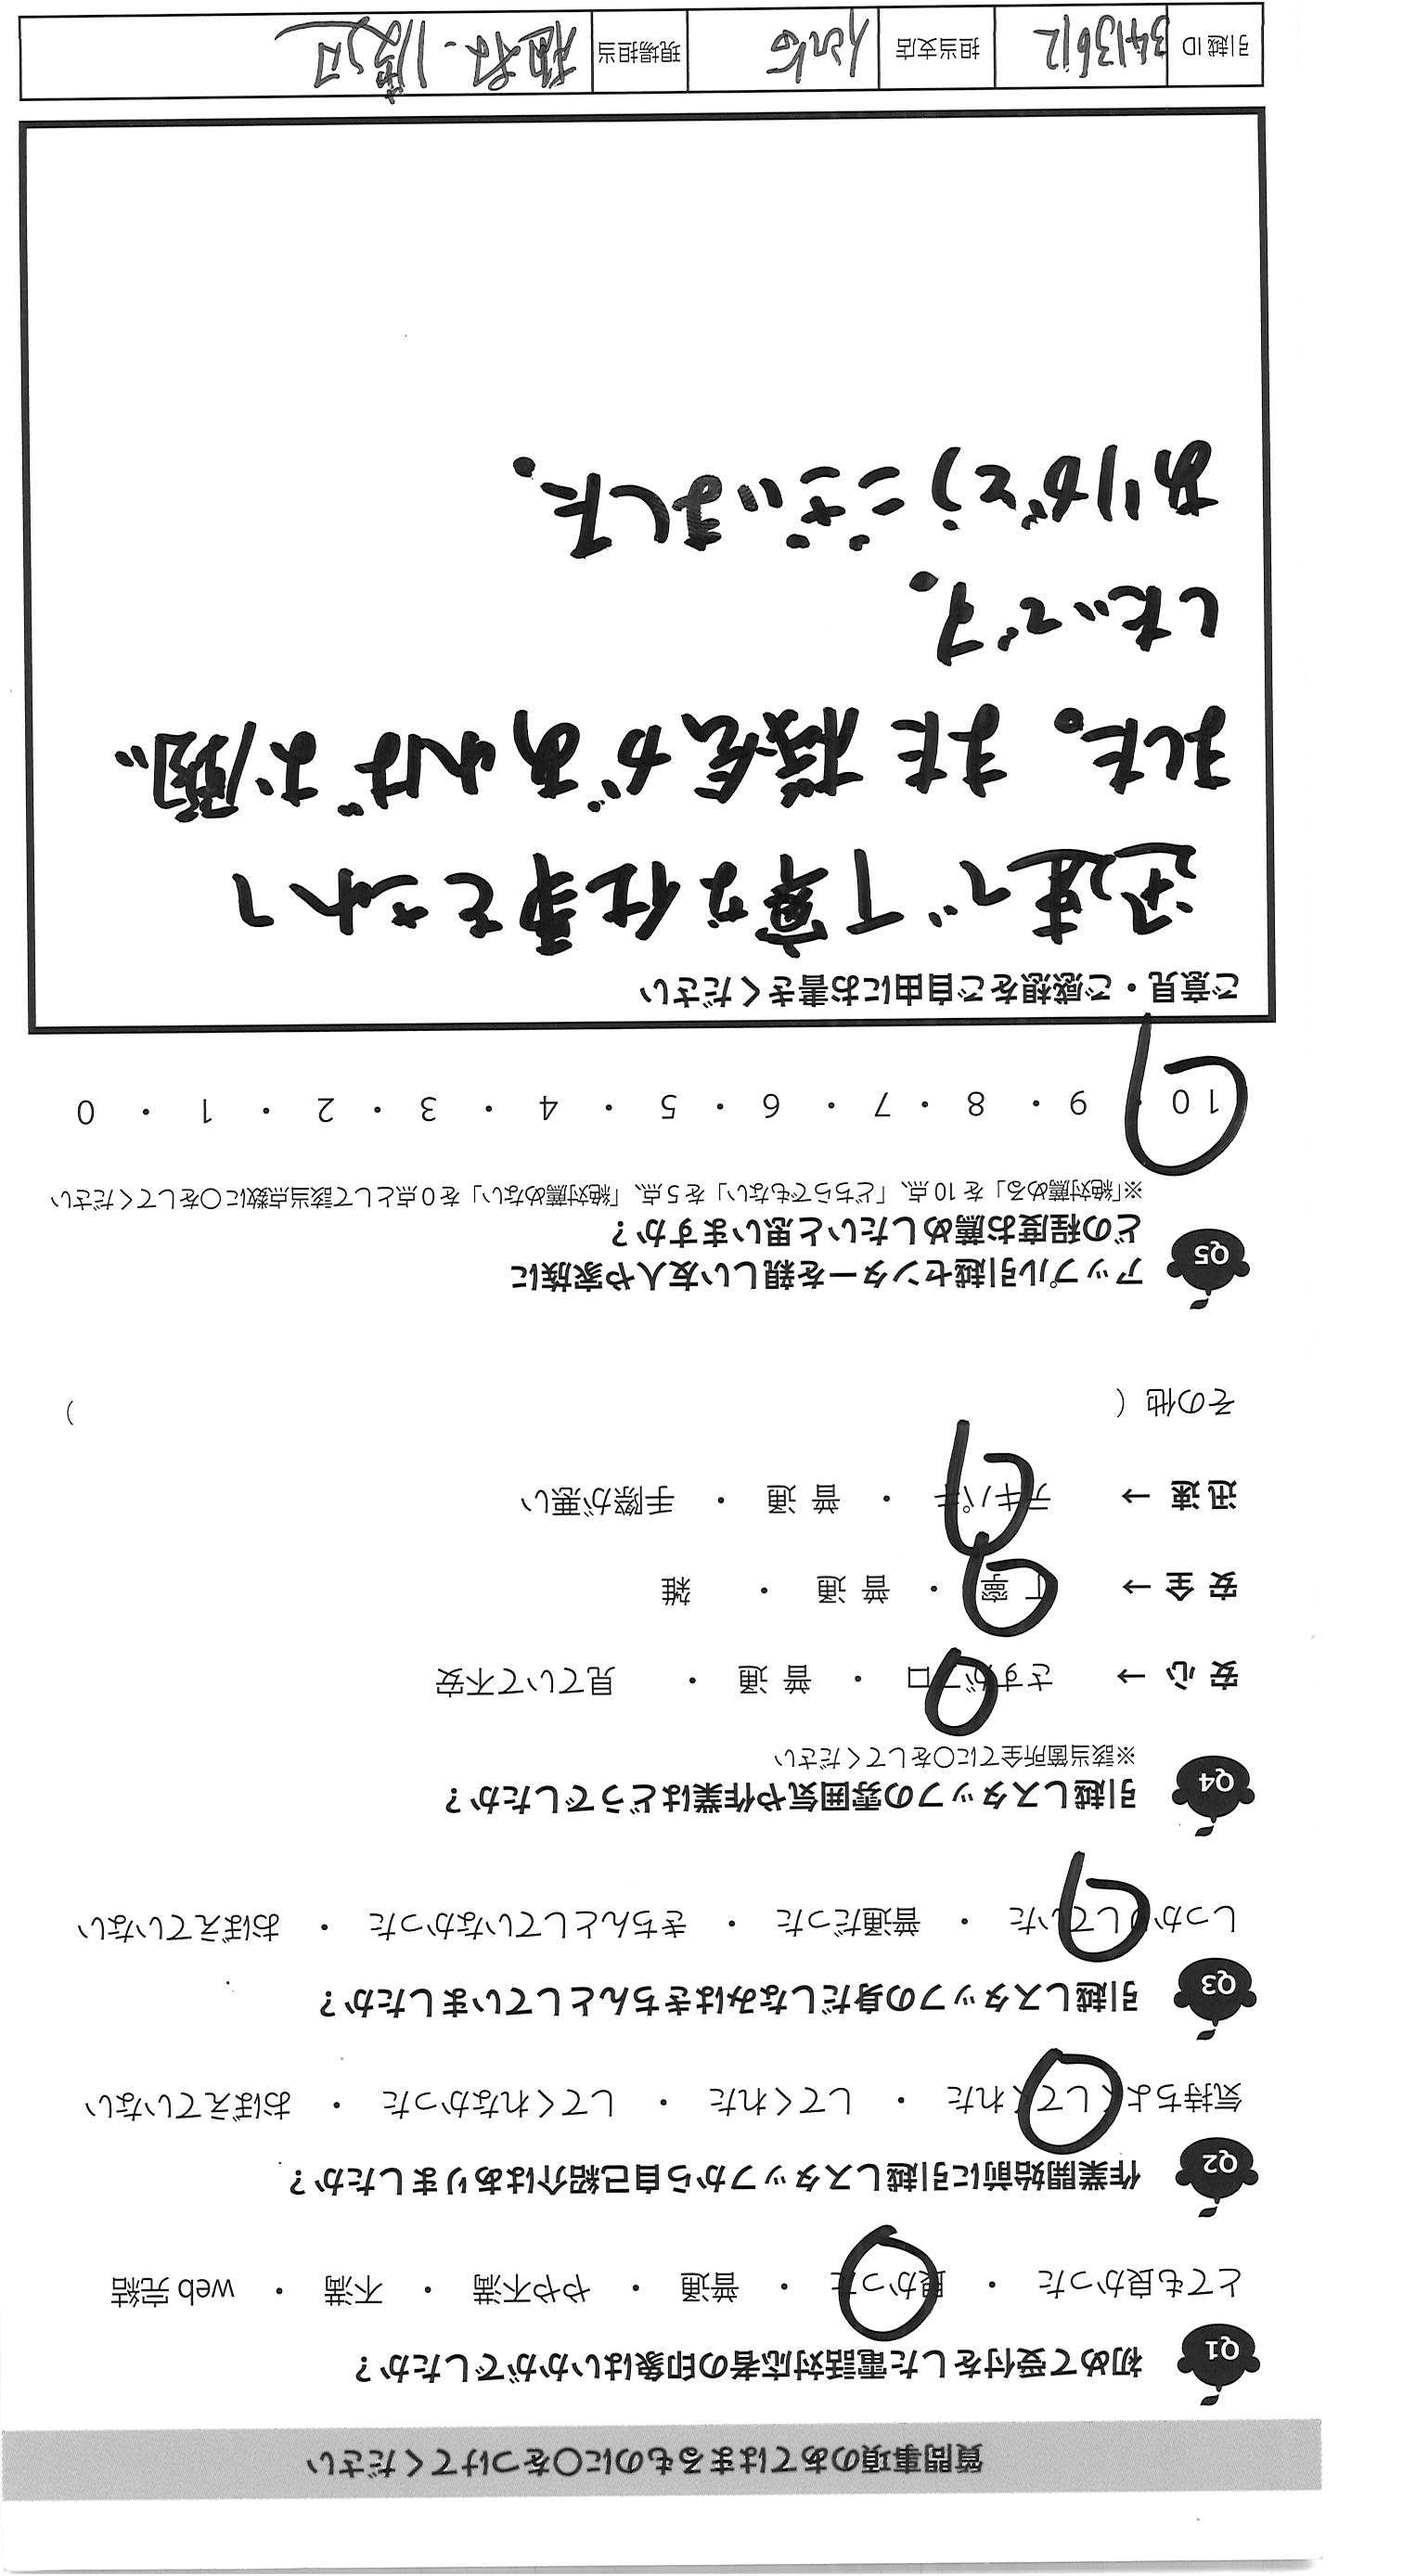 質問事項のあてはまるものに〇をつけてください
Q1 初めて受付をした電話対応者の印象はいかがでしたか？
とても良かった ・ 良かった ・ 普通 ・ やや不満 ・ 不満 ・ web 完結
Q2 作業開始前に引越しスタッフから自己紹介はありましたか？
気持ちよくしてくれた ・ してくれた ・ してくれなかった ・ おぼえていない
Q3 引越しスタッフの身だしなみはきちんとしていましたか？
しっかりしていた ・ 普通だった ・ きちんとしていなかった ・ おぼえていない
Q4 引越しスタッフの雰囲気や作業はどうでしたか？
※該当箇所全てに〇をしてください
安 心 → さすがプロ ・ 普 通 ・ 見ていて不安
安 全 → 丁 寧 ・ 普 通 ・ 雑
迅 速 → テキパキ ・ 普 通 ・ 手際が悪い
その他 （ ）
Q5 アップル引越センターを親しい友人や家族に
どの程度お薦めしたいと思いますか？
※「絶対薦める」を 10 点、「どちらでもない」を 5 点、「絶対薦めない」を 0 点として該当点数に〇をしてください
10 ・ 9 ・ 8 ・ 7 ・ 6 ・ 5 ・ 4 ・ 3 ・ 2 ・ 1 ・ 0
ご意見・ご感想をご自由にお書きください
迅速で丁寧な仕事をされて
ました。また機会があればお願い
したいです。
ありがとうございました。
引越 ID 3413612 担当支店 現場担当 渡辺